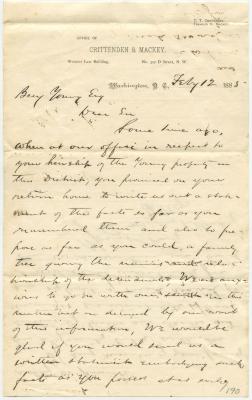 T. T. CRITTENDEN
FRANKLIN H. MACKEY
OFFICE OF
CRITTENDEN & MACKEY,
Webster Law Building, No. D Street, N. W.
Washington, D. C. Feby 12 1883
Benj Young Esq
Dear Sir
Some time ago,
when at our office in respect to
your kinship of the Young property in
this District, you promised on your
return home to write us out a state
ment of the facts so far as you
remembered them and also to pre
pare as far as you could, a family
tree giving the names and rela
tionship of the descendants. We are anx
ious to go on with our search in the
matter but are delayed by our want
of this information. We would be
glad if you would send us a
written statement embodying such
facts as you possess at an early
190